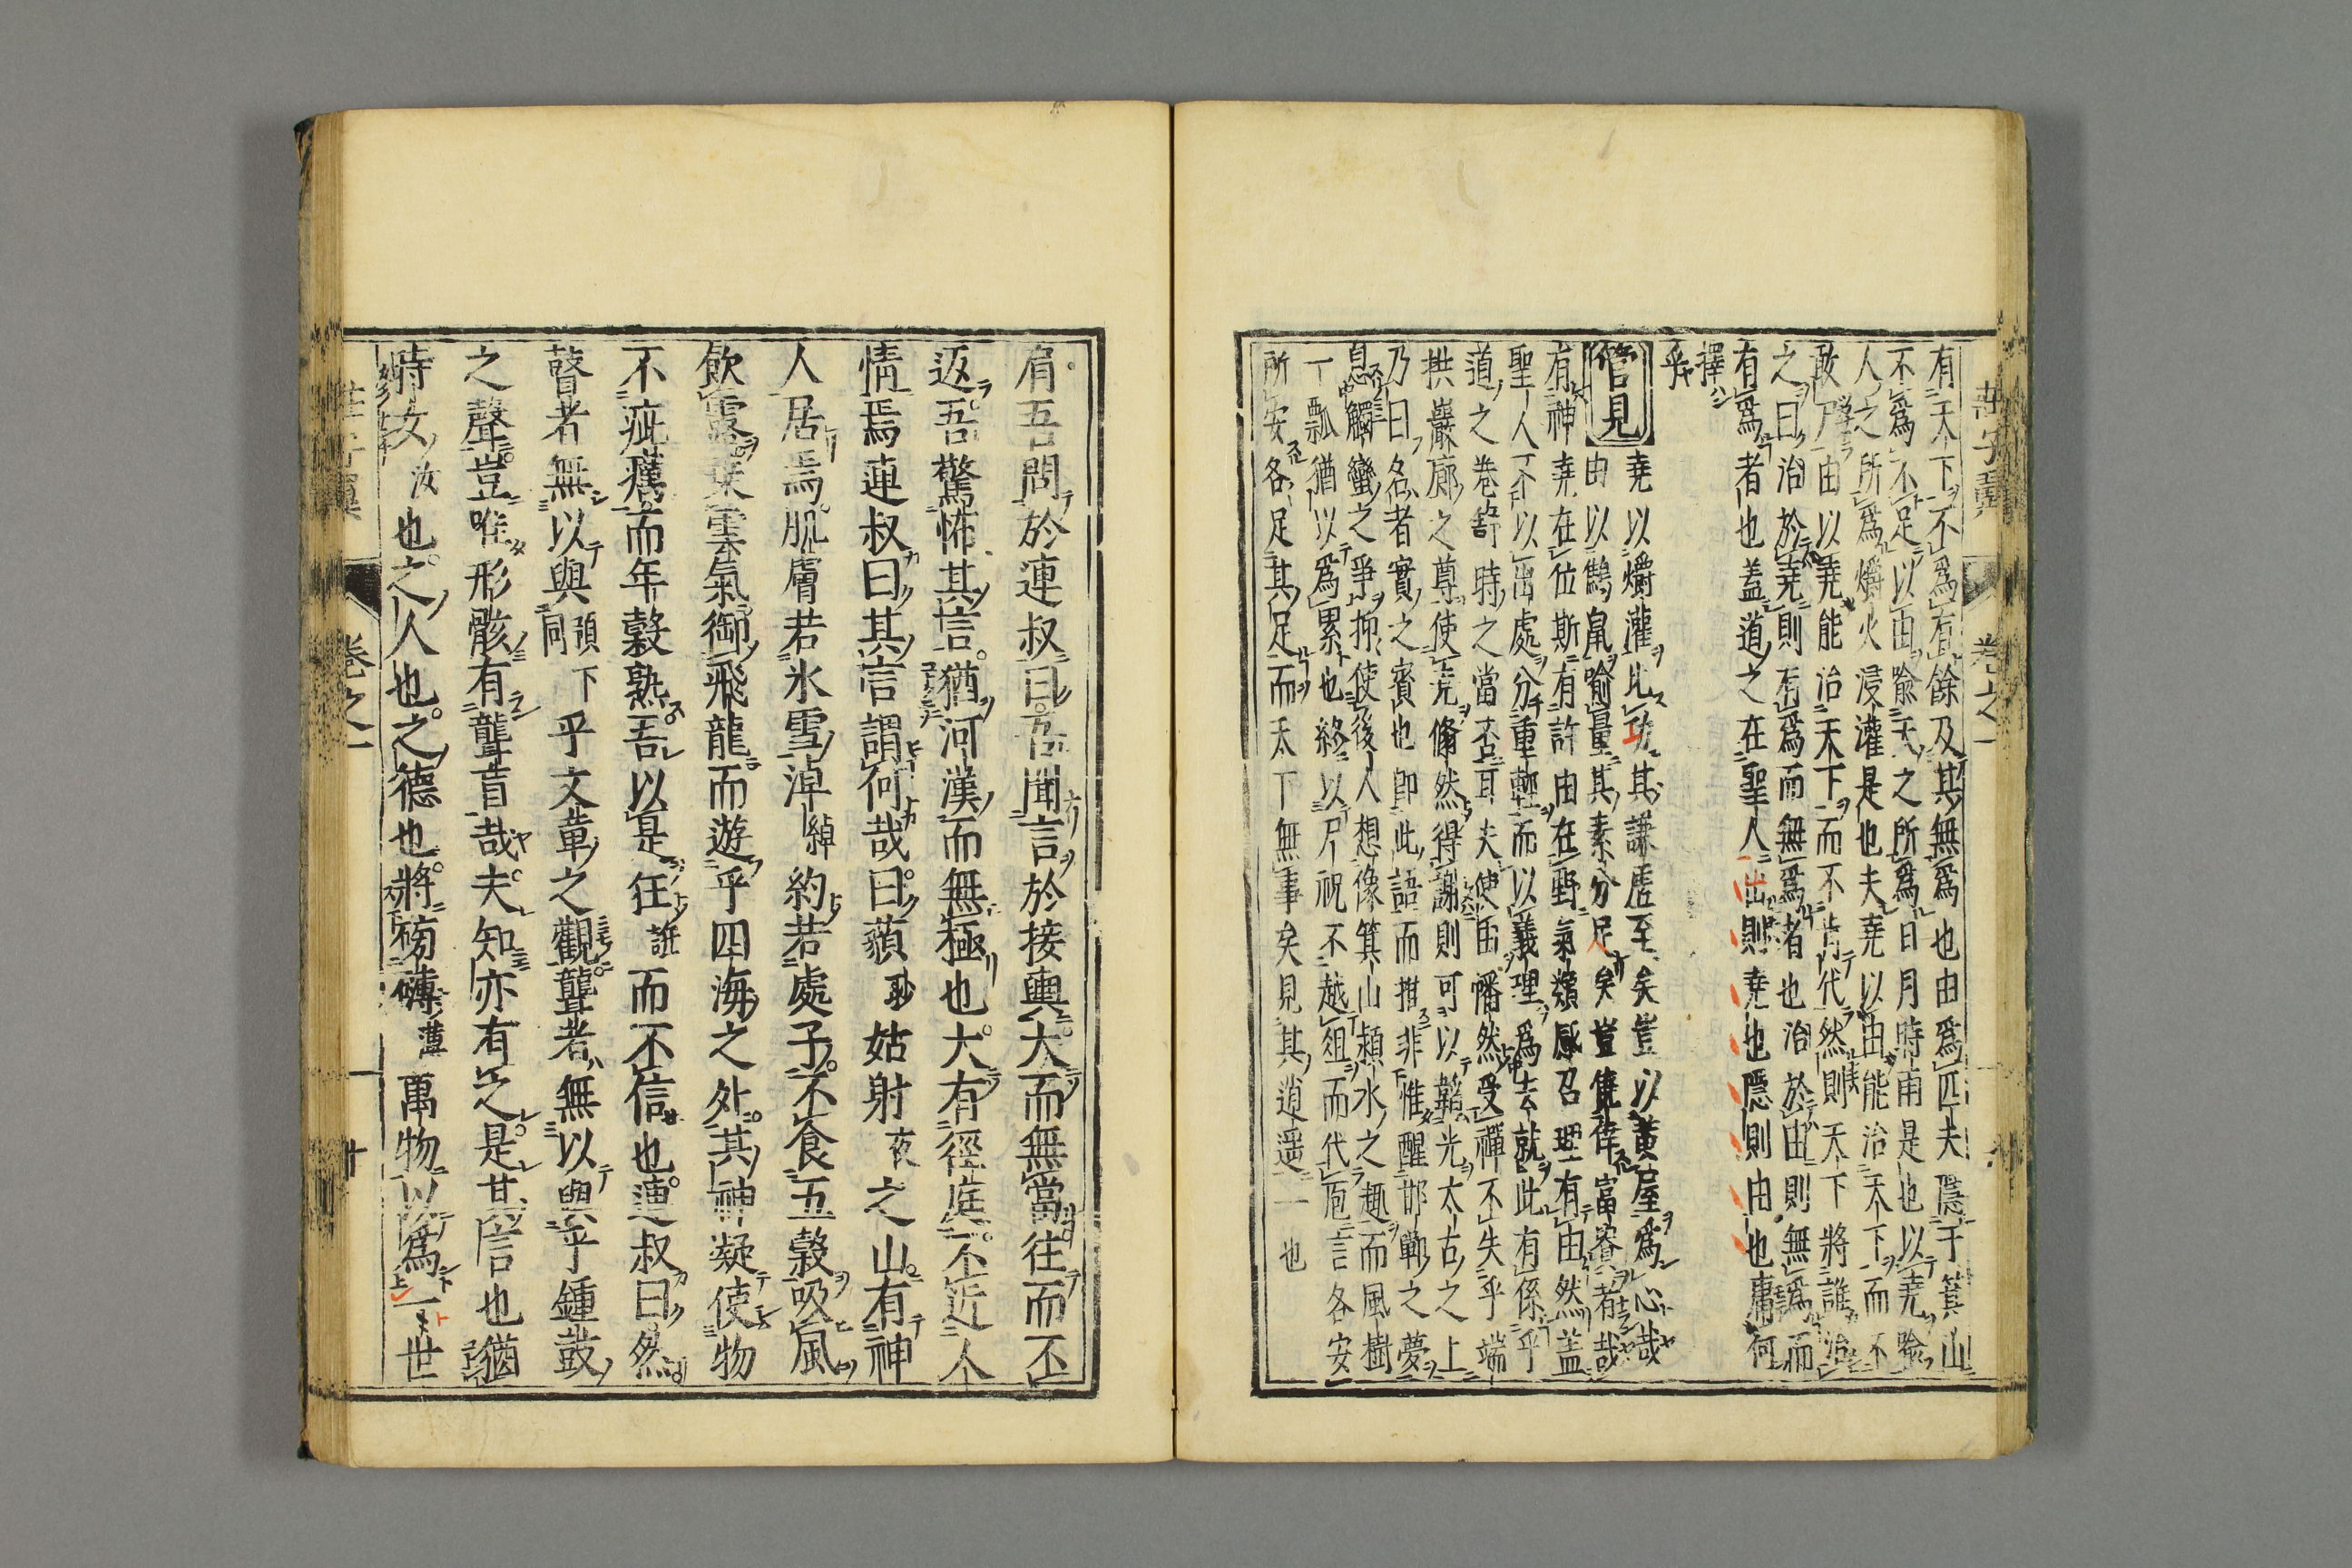 莊子翼 卷之一
有天下不爲有餘及其無爲也由爲匹夫隱于箕山
不爲不足以由喩天之所爲日月時雨是也以堯喩
人之所爲爝火浸灌是也夫堯以由能治天下而不
敢尸由以堯能治天下而不肯代然則天下將誰治
之曰治於堯則有爲而無爲者也治於由則無爲而
有爲者也蓋道之在聖人出則堯也隱則由也庸何
擇乎
管見 堯以爝灌比功其謙虛至矣豈以黃屋爲心哉
由以鷦鼠喻量其素分足矣豈僥倖富貴者哉
有神堯在位斯有許由在野氣類感召理有由然蓋
聖人不以出處分重輕而以義理爲去就此有係乎
道之卷舒時之當否耳夫使由幡然受禪不失乎端
拱巖廊之尊使堯翛然得謝則可以韜光太古之上
乃曰名者實之賓也即此語而推非惟醒邯鄲之夢
息觸蠻之爭抑使後人想像箕山潁水之趣而風樹
一瓢猶以爲累也終以尸祝不越俎而代庖言各安
所安各足其足而天下無事矣見其逍遥一也
肩吾問於連叔曰吾聞言於接輿大而無當往而不
返吾驚怖其言猶河漢而無極也大有徑庭不近人
情焉連叔曰其言謂何哉曰藐眇姑射夜之山有神
人居焉肌膚若氷雪淖綽約若處子不食五穀吸風
飮露乗雲氣御飛龍而遊乎四海之外其神凝使物
不疵癘而年穀熟吾以是狂誑而不信也連叔曰然
瞽者無以與頭下同乎文章之觀聾者無以與乎鍾鼓
之聲豈唯形骸有聾盲哉夫知亦有之是其言也猶
時女汝也之人也之德也將磅礴薄萬物以爲一世
莊子翼 卷之一 十